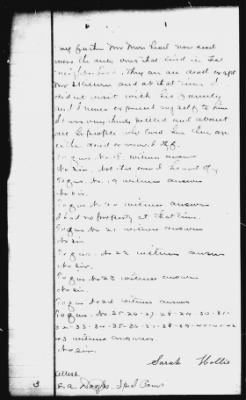 my father Mr Moses Paul now dead
were the only ones that lived in the
neighborhood. They are all dead except
Mr and at that time I
did not visit with his family
and I never exposed myself to him
I was very kindly killed and about
all the people who lived then are
either dead or moved off.
To ques. No. 18 witness answers
No Sir, not that ever I heard of
To ques. No. 19 witness answers
No Sir.
To ques. No. 20 witness answers
I had no property at that time.
To ques No. 21 witness answers
No Sir
To ques. No. 22 witness answers
No Sir.
To ques No 23 witness answers
No Sir.
To ques No 24 witness answers
To ques. No. 25-26-27-28-29-30-31-
32-33-34-35-36-37-38-39-40-41-42
43 witness answers
No Sir.
Sarah Hollis
Attest
E. A. Spcl Com
3